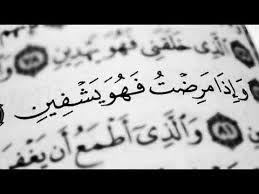 ٱلَّذِى خَلَقَنِى فَهُوَ يَهْدِينِ
وَإِذَا مَرِضْتُ فَهُوَ يَشْفِينِ
٨١ وَٱلَّذِىٓ أَطْمَعُ أَن يَغْفِرَ